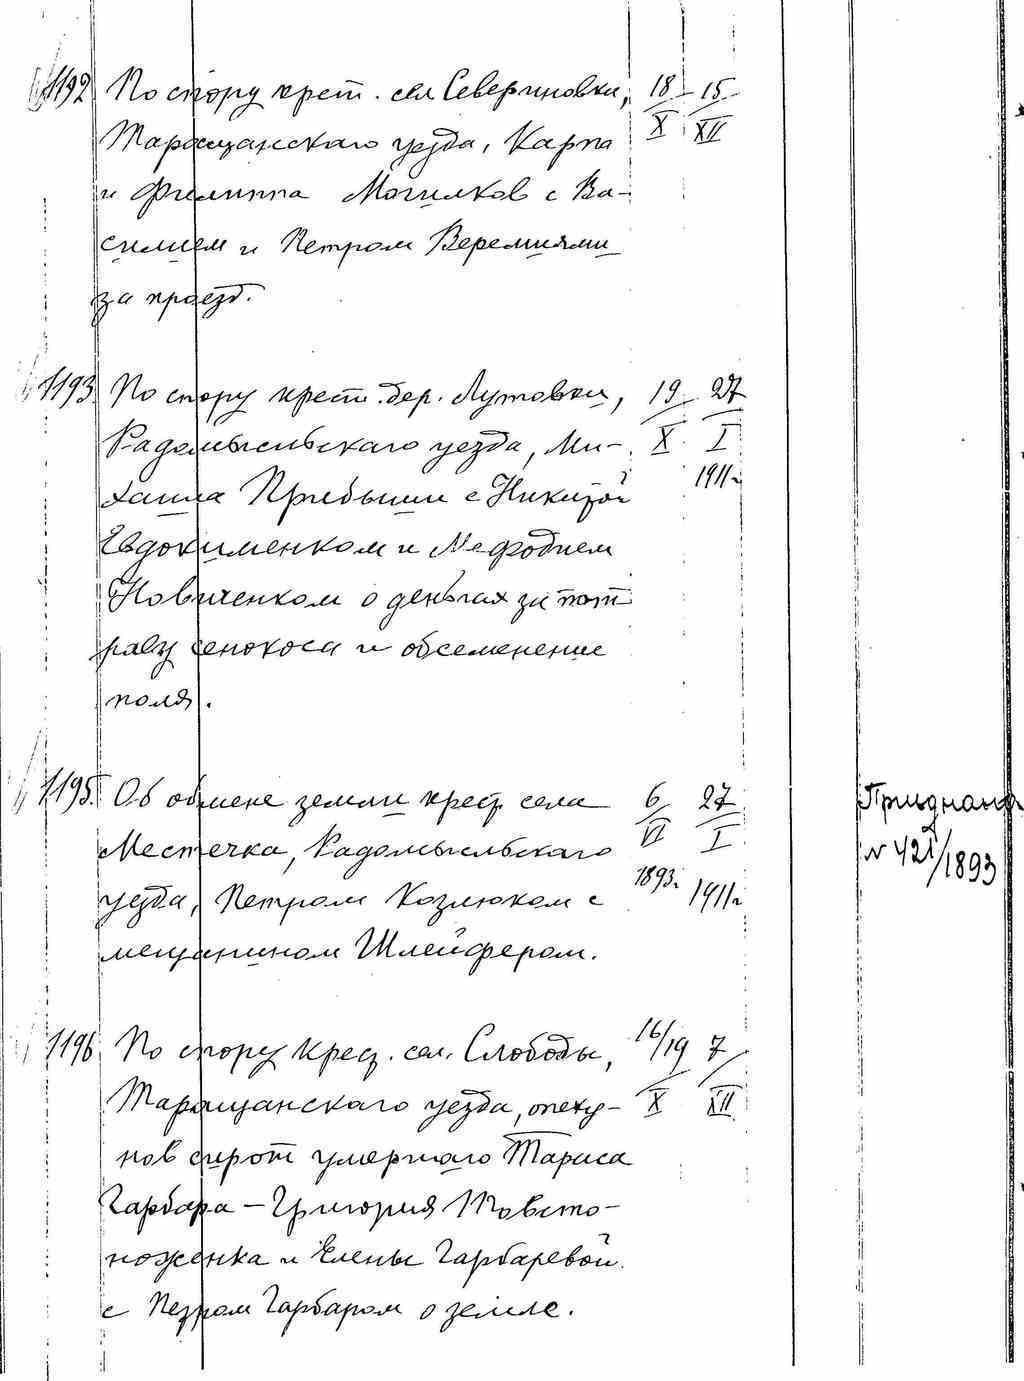 1192 По спору крест. сел Севериновки, 18 15
Таращанскаго уезда, Карпа X XII
и Филиппа Могилков с Ва-
силием и Петром Веремиями
за проезд.
1193 По спору крест. дер. Лутовки, 19 27
Радомысльскаго уезда, Ми- X I
хаила Прибыши с Никитой 1911г
Евдокименком и Мефодием
Новиченком о деньгах за пот
раву сенокоса и обсеменение
поля.
1195. Об обмене земли крест. села 6 27
Местечка, Радомысльскаго VI I
уезда, Петром Козлюком с 1893г. 1911г
мещанином Шлейфером.
Приєднана
N 421/1893
1196 По спору крест. сел. Слободы, 16/19 7
Таращанскаго уезда, опеку- X XII
нов сирот умершаго Тараса
Гарбара – Григория Товсто-
ноженка и Елены Гарбаревой
с Петром Гарбаром о земле.